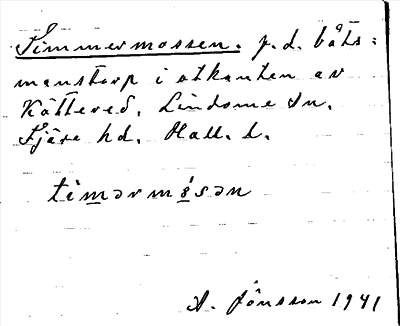 Timmermossen. f.d. båts-
manstorp i utkanten av
Kättered. Lindome sn.
Fjäre hd. Hall. l.
timərmósən
A. Jönsson 1941